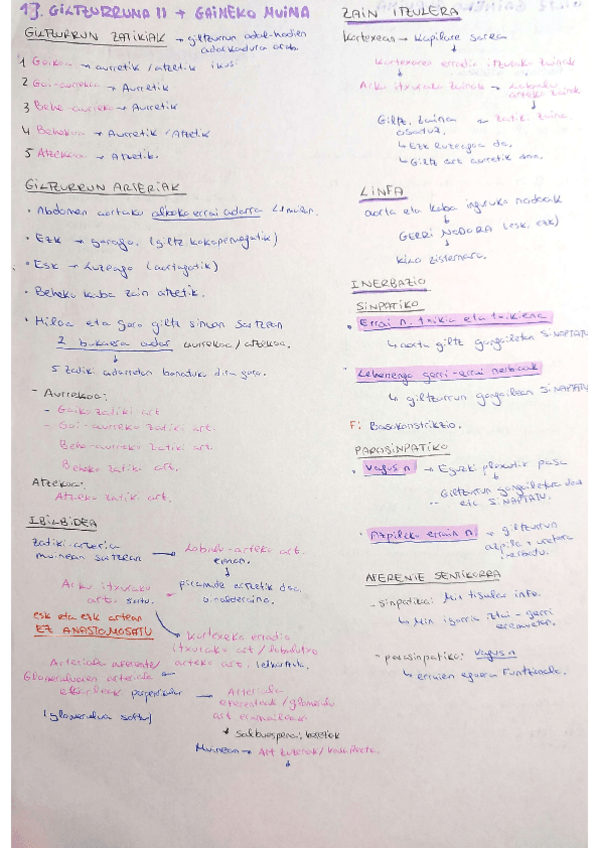 13. GILTZURRUNA II + GAINEKO MUINA
GILTZURRUN ZATIKIAK → giltzurrun odol-hodien
adarkadura arab.
1 Goikoa → aurretik / atzetik ikusi
2 Goi-aurrekoa → Aurretik
3 Behe aurreko → Aurretik
4 Behekoa → Aurretik / Atzetik
5 Atzekoa → Atzetik.
GILTZURRUN ARTERIAK
• Abdomen aortako alboko errai adarra
• Ezk → garago. (giltz kokapenagatik)
• Esk → Luzeago (aortagatik)
• Beheko kaba zain atzetik.
• Hiloa eta gero giltz sinuan sartzean
2 bukaera adar aurrekoa / atzekoa.
↓
5 zatiki adarretan banatuko dira gero.
- Aurrekoa:
- Goiko zatiki art
- Goi-aurreko zatiki art.
Behe-aurreko zatiki art.
Beheko zatiki art.
Atzekoa:
Atzeko zatiki art.
IBILBIDEA
Zatiki-arteria
muinean sartzean → Lobulu-arteko art.
eman.
↓
piramide ertzetik doa,
oinalderaino.
Arku itxurako
art. sortu.
esk eta ezk artean
EZ ANASTOMOSATU
Kortexeko erradio
itxurako art / lobulutxo
arteko art.
Arteriola aferente /
Glomeruluaren arteriola
ekarleak perpendikular → Arteriola
eferenteak / glomerulu
art eramaileak
(glomerulua sortu)
↓ salbuespena:
Muinean → Art zuzenak / Vasa Recta.
↓
ZAIN ITZULERA
Kortexean → Kapilare sarea
↓
Kortexaren erradio itxurako zainak
↓
Arku itxurako zainak → Lobulu
arteko zainak
↓
Giltz. Zainoa ← Zatiki Zaina.
osatuz.
↳ Ezk luzeagoa da.
↳ Giltz art aurretik doa.
LINFA
aorta eta kaba inguruko nodoak
↓
GERRI NODORA (esk, ezk)
↓
kilo zisternara.
INERBAZIO
SINPATIKO
• Errai n. txikia eta txikiena
↳ aorta giltz gongoiletan SINAPTATU
• Lehenengo gerri-errai nerbioak
↳ giltzurrun gongoilean SINAPTATU
F: Basokonstrikzio.
PARASINPATIKO
• Vagus n → Eguzki plexutik pasa
↳ Giltzurrun gongoiletara doa
eta SINAPTATU.
• Azpileko errain n. → giltzurrun
azpila + uretera
inerbatu.
AFERENTE SENTIKORRA
- sinpatikoa: Min tisular info.
↳ Min igorria
- parasinpatikoa: Vagus n
↳ erraien egoera funtzionala.